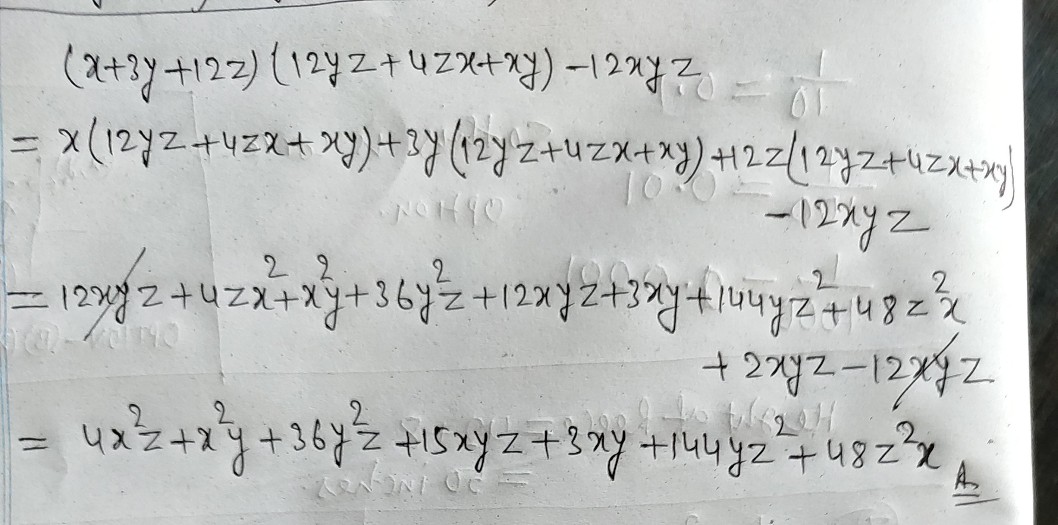 (x+3y+12z)(12yz+4zx+xy)-12xyz
= x(12yz+4zx+xy)+3y(12yz+4zx+xy)+12z(12yz+4zx+xy)
-12xyz
= 12xyz+4zx²+x²y+36y²z+12xyz+3xy+144yz²+48z²x
+2xyz-12xyz
= 4x²z+x²y+36y²z+15xyz+3xy+144yz²+48z²x